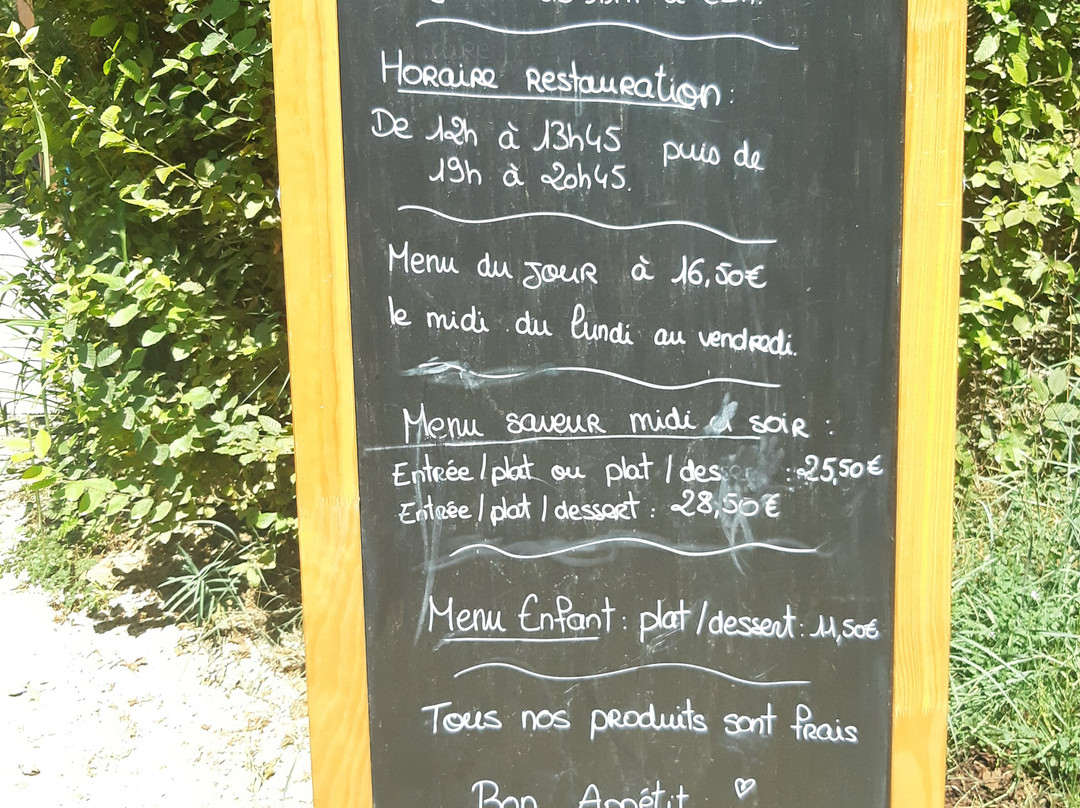 Horaire restauration :
De 12h à 13h45 puis de
19h à 20h45.
Menu du jour à 16,50€
le midi du lundi au vendredi.
Menu saveur midi & soir :
Entrée / plat ou plat / dessert : 25,50€
Entrée / plat / dessert : 28,50€
Menu Enfant : plat / dessert : 11,50€
Tous nos produits sont frais
Bon Appétit